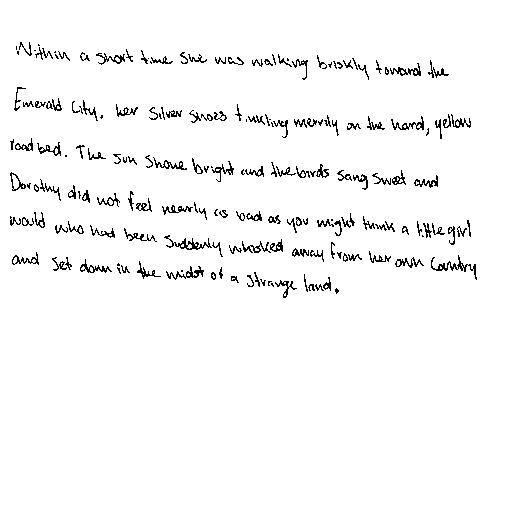 Within a short time she was walking briskly toward the
Emerald City, her Silver Shoes tinkling merrily on the hard, yellow
roadbed. The sun shone bright and the birds sang sweet and
Dorothy did not feel nearly as bad as you might think a little girl
would who had been suddenly whisked away from her own country
and set down in the midst of a strange land.